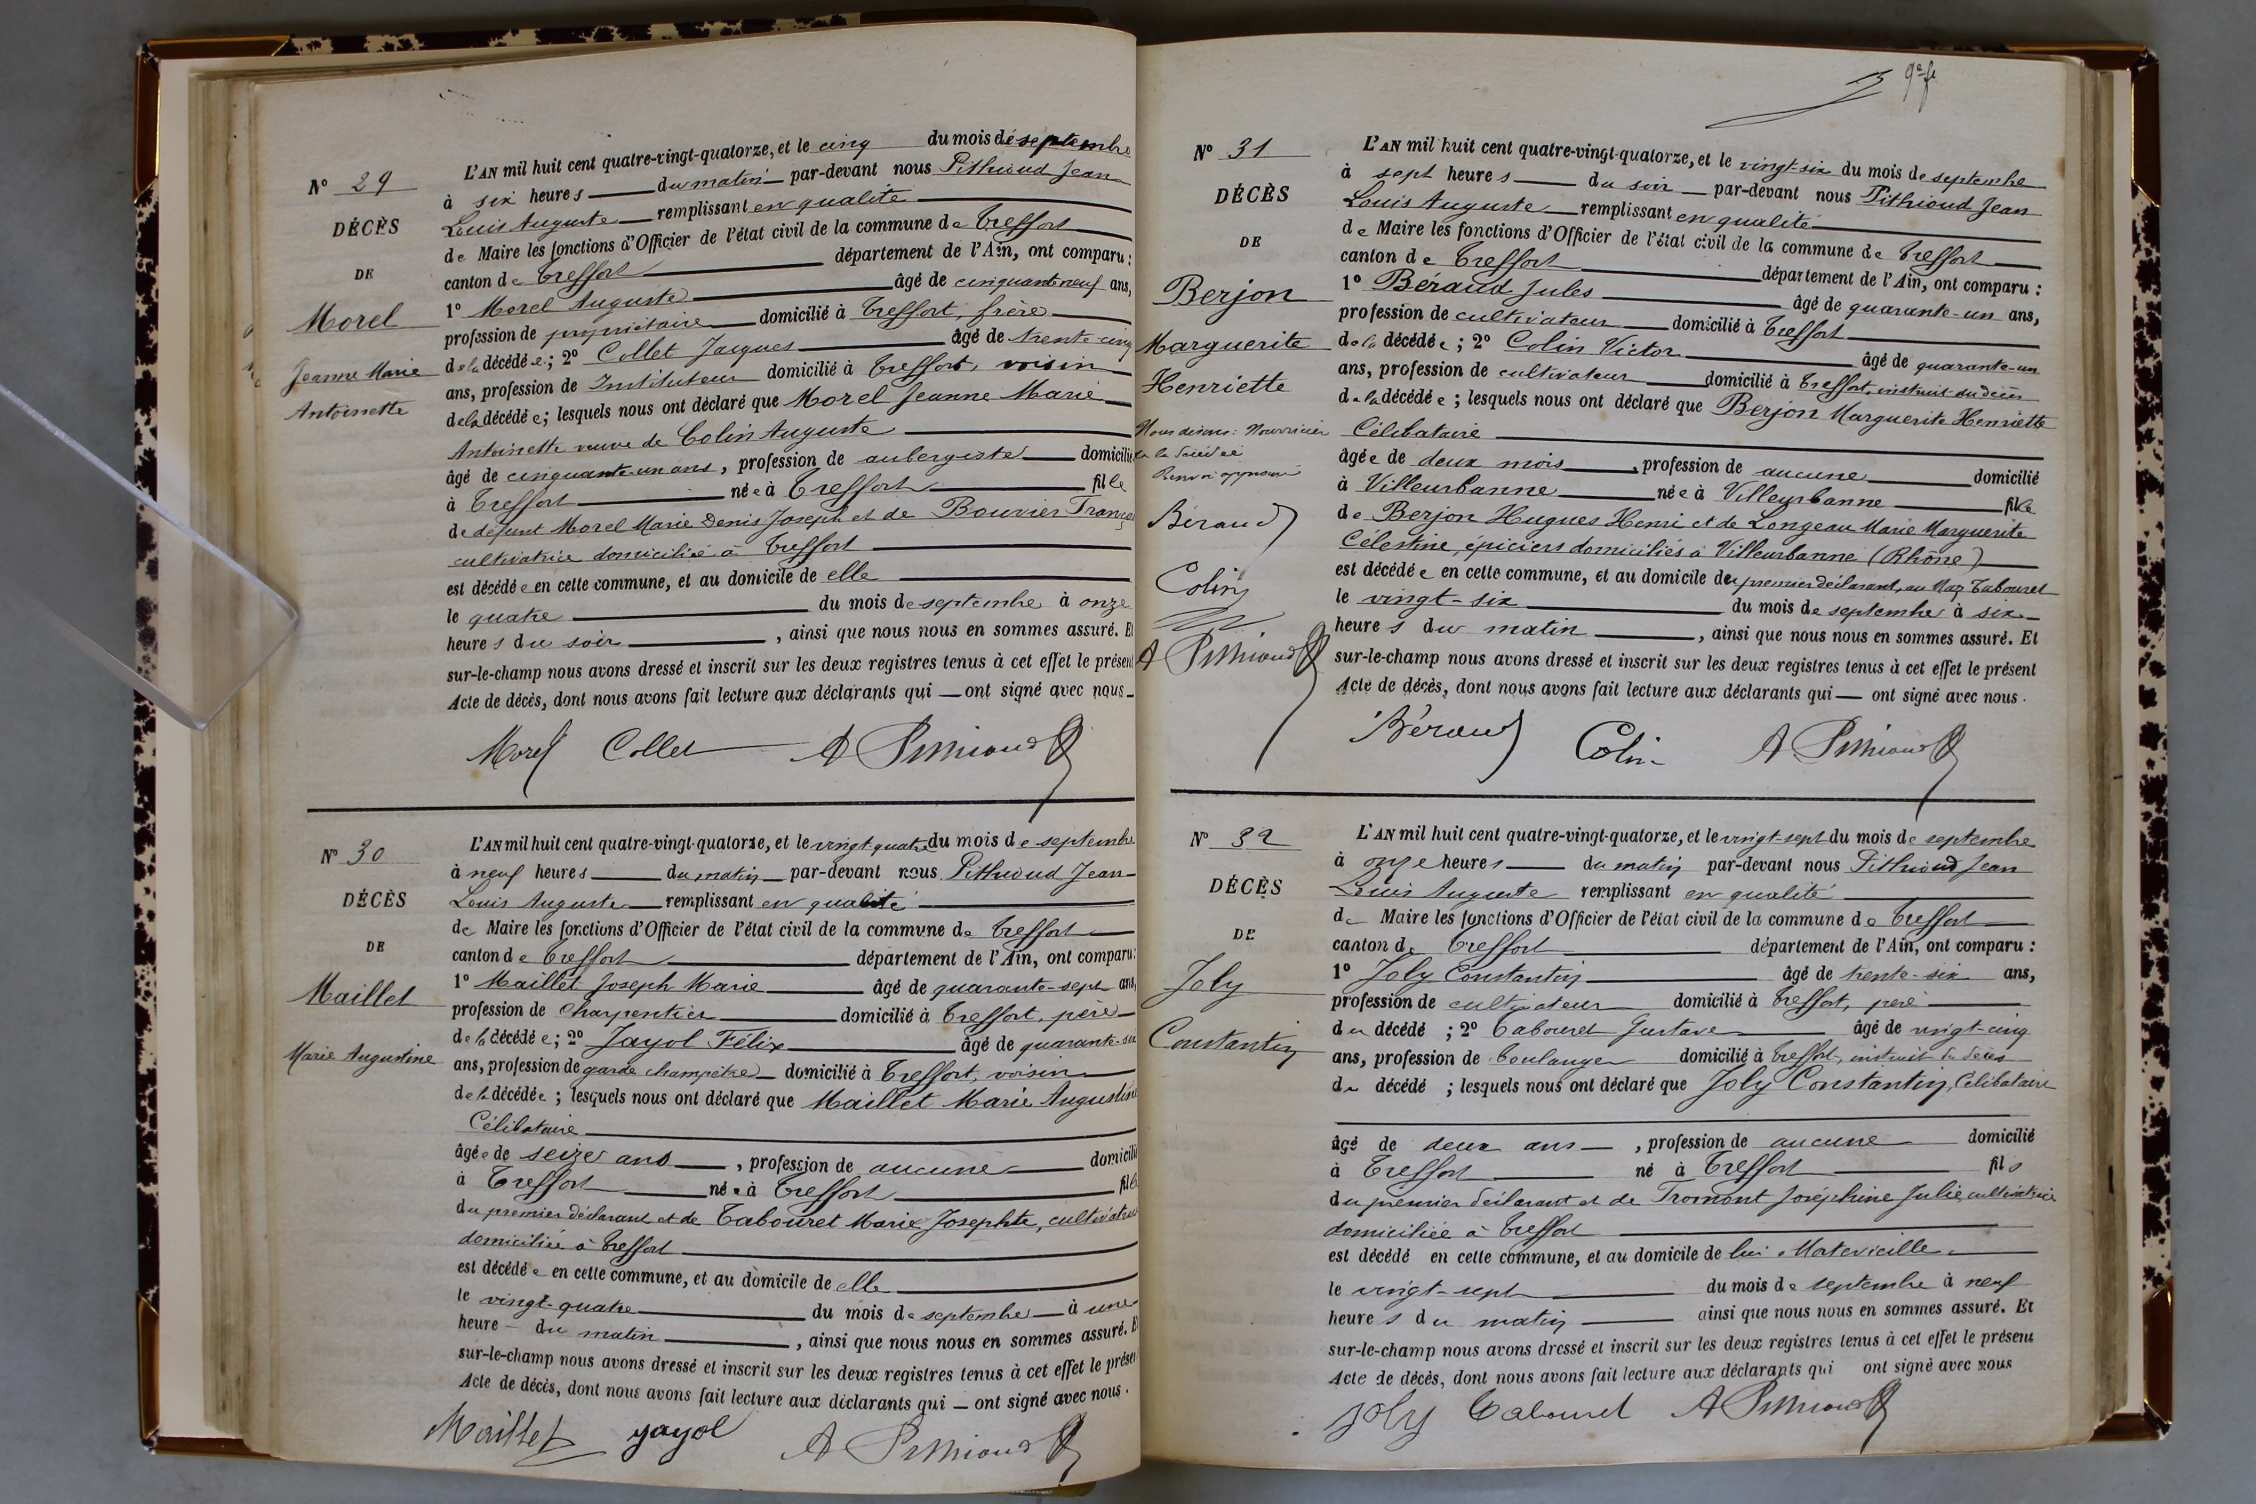 N° 29
DÉCÈS
DE
Morel
Jeanne Marie
Antoinette
L'AN mil huit cent quatre-vingt-quatorze, et le cinq du mois de septembre
à six heures du matin par-devant nous Pithioud Jean
Louis Auguste remplissant en qualité
de Maire les fonctions d'Officier de l'état civil de la commune de Treffort
canton de Treffort département de l'Ain, ont comparu :
1° Morel Auguste âgé de cinquante neuf ans,
profession de propriétaire domicilié à Treffort, frère
de la décédée ; 2° Collet Jacques âgé de trente-cinq
ans, profession de Instituteur domicilié à Treffort, voisin
de la décédée ; lesquels nous ont déclaré que Morel Jeanne Marie
Antoinette veuve de Colin Auguste
âgé de cinquante-un ans, profession de aubergiste domicilié
à Treffort née à Treffort fille
de défunt Morel Marie Denis Joseph et de Bouvier
cultivatrice domiciliée à Treffort
est décédée en cette commune, et au domicile de elle
le quatre du mois de septembre à onze
heures du soir, ainsi que nous nous en sommes assuré. Et
sur-le-champ nous avons dressé et inscrit sur les deux registres tenus à cet effet le présent
Acte de décès, dont nous avons fait lecture aux déclarants qui — ont signé avec nous
Morel Collet A Pithioud
N° 30
DÉCÈS
DE
Maillet
Marie Augustine
L'AN mil huit cent quatre-vingt-quatorze, et le vingt-quatre du mois de septembre
à neuf heures du matin par-devant nous Pithioud Jean
Louis Auguste remplissant en qualité
de Maire les fonctions d'Officier de l'état civil de la commune de Treffort
canton de Treffort département de l'Ain, ont comparu :
1° Maillet Joseph Marie âgé de quarante-sept ans,
profession de Charpentier domicilié à Treffort, père
de la décédée ; 2° Jayol Félix âgé de quarante-six
ans, profession de garde champêtre domicilié à Treffort, voisin
de la décédée ; lesquels nous ont déclaré que Maillet Marie Augustine
Célibataire
âgée de seize ans, profession de aucune domicilié
à Treffort née à Treffort fille
du premier déclarant et de Tabouret Marie Josephte, cultivatrice
domiciliée à Treffort
est décédée en cette commune, et au domicile de elle
le vingt-quatre du mois de septembre à une
heure du matin, ainsi que nous nous en sommes assuré. Et
sur-le-champ nous avons dressé et inscrit sur les deux registres tenus à cet effet le présent
Acte de décès, dont nous avons fait lecture aux déclarants qui — ont signé avec nous.
Maillet Jayol A Pithioud
9e f
N° 31
DÉCÈS
DE
Berjon
Marguerite
Henriette
Nous disons : Nourricier
de la décédée
Renvoi approuvé
Béraud
Colin
A Pithioud
L'AN mil huit cent quatre-vingt-quatorze, et le vingt-six du mois de septembre
à sept heures du soir par-devant nous Pithioud Jean
Louis Auguste remplissant en qualité
de Maire les fonctions d'Officier de l'état civil de la commune de Treffort
canton de Treffort département de l'Ain, ont comparu :
1° Béraud Jules âgé de quarante-un ans,
profession de cultivateur domicilié à Treffort
de la décédée ; 2° Colin Victor âgé de quarante-un
ans, profession de cultivateur domicilié à Treffort, instruit du décès
de la décédée ; lesquels nous ont déclaré que Berjon Marguerite Henriette
Célibataire
âgée de deux mois, profession de aucune domicilié
à Villeurbanne née à Villeurbanne fille
de Berjon Hugues Henri et de Longeau Marie Marguerite
Célestine, épiciers domiciliés à Villeurbanne (Rhône)
est décédée en cette commune, et au domicile du premier déclarant, au Mas Tabouret
le vingt-six du mois de septembre à six
heures du matin, ainsi que nous nous en sommes assuré. Et
sur-le-champ nous avons dressé et inscrit sur les deux registres tenus à cet effet le présent
Acte de décès, dont nous avons fait lecture aux déclarants qui — ont signé avec nous.
Béraud Colin A Pithioud
N° 32
DÉCÈS
DE
Joly
Constantin
L'AN mil huit cent quatre-vingt-quatorze, et le vingt-sept du mois de septembre
à onze heures du matin par-devant nous Pithioud Jean
Louis Auguste remplissant en qualité
de Maire les fonctions d'Officier de l'état civil de la commune de Treffort
canton de Treffort département de l'Ain, ont comparu :
1° Joly Constantin âgé de trente-six ans,
profession de cultivateur domicilié à Treffort, père
du décédé ; 2° Tabouret Gustave âgé de vingt-cinq
ans, profession de boulanger domicilié à Treffort, instruit du décès
du décédé ; lesquels nous ont déclaré que Joly Constantin, Célibataire
âgé de deux ans, profession de aucune domicilié
à Treffort né à Treffort fils
du premier déclarant et de Tromont Joséphine Julie cultivatrice
domiciliée à Treffort
est décédé en cette commune, et au domicile de lui
le vingt-sept du mois de septembre à neuf
heures du matin ainsi que nous nous en sommes assuré. Et
sur-le-champ nous avons dressé et inscrit sur les deux registres tenus à cet effet le présent
Acte de décès, dont nous avons fait lecture aux déclarants qui ont signé avec nous
Joly Tabouret A Pithioud